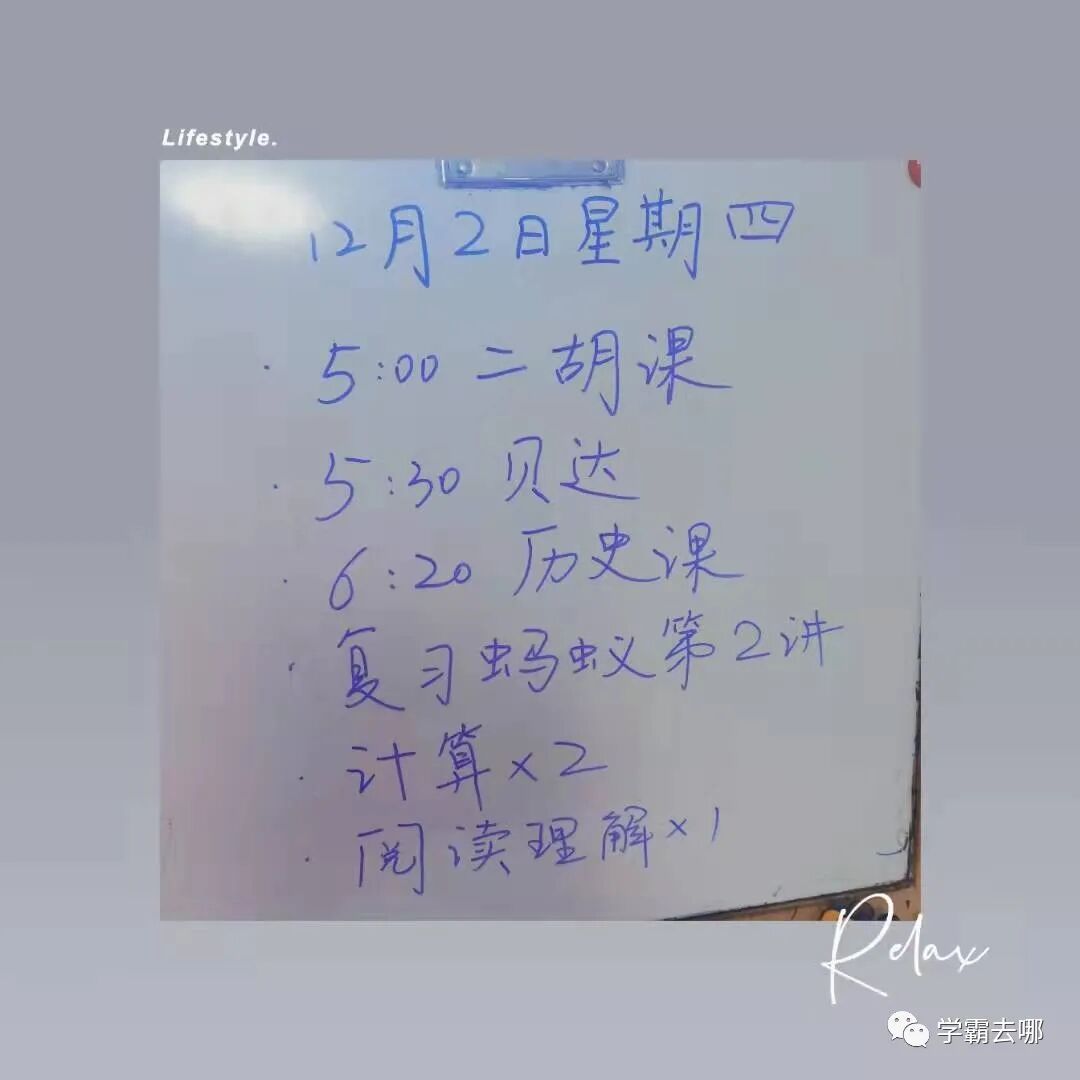 Lifestyle.
12月2日星期四
· 5:00 二胡课
· 5:30 贝达
· 6:20 历史课
· 复习蚂蚁第2讲
· 计算×2
· 阅读理解×1
Relax
学霸去哪